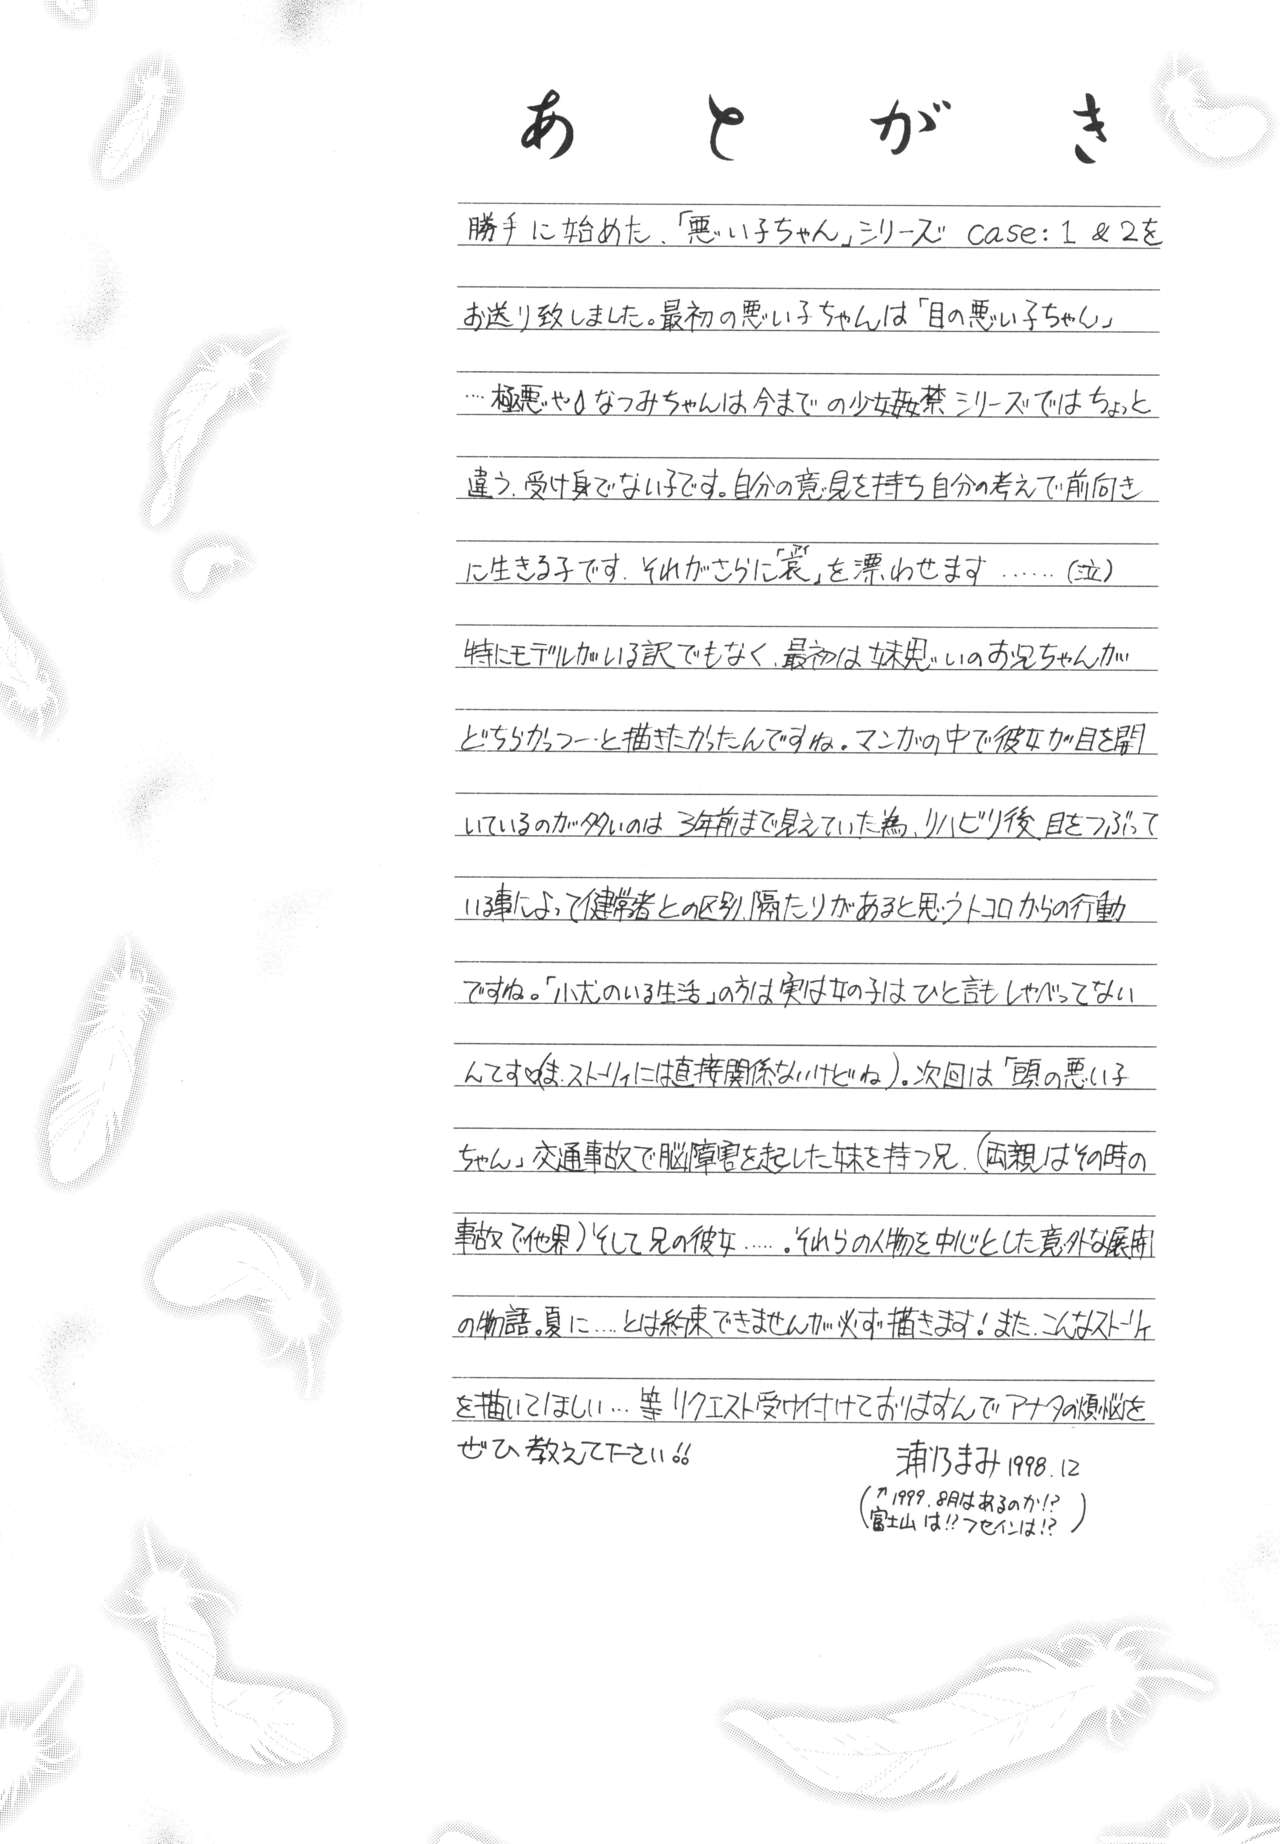 あとがき
勝手に始めた、「悪い子ちゃん」シリーズ case:1 & 2を
お送り致しました。最初の悪い子ちゃんは「目の悪い子ちゃん」
…極悪や♪なつみちゃんは今までの少女姦禁シリーズではちょっと
違う、受け身でない子です。自分の意見を持ち自分の考えで前向き
に生きる子です、それがさらに「哀」を漂わせます……(泣)
特にモデルがいる訳でもなく、最初は妹思いのお兄ちゃんが
どちらかっつー…と描きたかったんですね。マンガの中で彼女が目を開
いているのが多いのは3年前まで見えていた為、リハビリ後、目をつぶって
いる事によって健常者との区別、隔たりがあると思うトコロからの行動
ですね。「小犬のいる生活」の方は実は女の子はひと言もしゃべってない
んです♡(ま、ストーリィには直接関係ないけどね)。次回は「頭の悪い子
ちゃん」交通事故で脳障害を起した妹を持つ兄、(両親はその時の
事故で他界)そして兄の彼女……。それらの人物を中心とした意外な展開
の物語。夏に……とは約束できませんが必ず描きます!また、こんなストーリィ
を描いてほしい…等リクエスト受け付けておりますんでアナタの煩悩を
ぜひ教えて下さい!!
浦乃まみ 1998.12
(↑1999.8月はあるのか!?
富士山は!?フセインは!?)